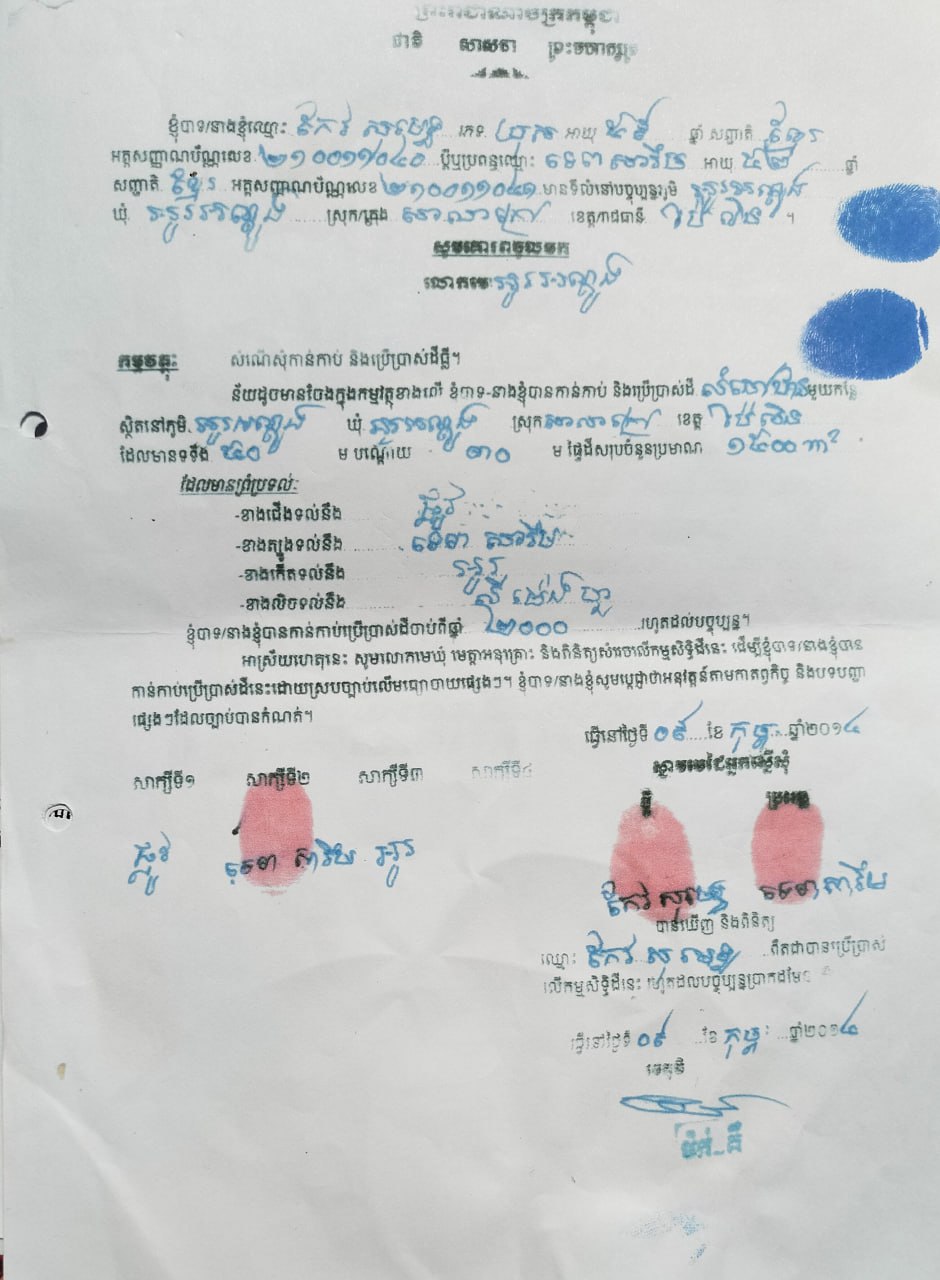 ព្រះរាជាណាចក្រកម្ពុជា
ជាតិ សាសនា ព្រះមហាក្សត្រ
ខ្ញុំបាទ/នាងខ្ញុំឈ្មោះ កែវ ភេទ អាយុ ឆ្នាំ សញ្ជាតិ ខ្មែរ
អត្តសញ្ញាណប័ណ្ណលេខ ២១០០១១០៤០ ប្តីឬប្រពន្ធឈ្មោះ ទេព សារឹម អាយុ ឆ្នាំ
សញ្ជាតិ ខ្មែរ អត្តសញ្ញាណប័ណ្ណលេខ ២១០០១១០៤១ មានទីលំនៅបច្ចុប្បន្នភូមិ អូរអណ្តូង
ឃុំ អូរអណ្តូង ស្រុក/ក្រុង សាលាក្រៅ ខេត្ត/រាជធានី ប៉ៃលិន ។
សូមគោរពចូលមក
លោកមេ អូរអណ្តូង
កម្មវត្ថុ៖ សំណើសុំកាន់កាប់ និងប្រើប្រាស់ដីធ្លី។
ន័យដូចមានចែងក្នុងកម្មវត្ថុខាងលើ ខ្ញុំបាទ-នាងខ្ញុំបានកាន់កាប់ និងប្រើប្រាស់ដី លំនៅឋាន មួយកន្លែង
ស្ថិតនៅភូមិ អូរអណ្តូង ឃុំ អូរអណ្តូង ស្រុក សាលាក្រៅ ខេត្ត ប៉ៃលិន
ដែលមានទទឹង ៥០ ម បណ្តោយ ៣០ ម ផ្ទៃដីសរុបចំនួនប្រមាណ ១៥០០ m²
ដែលមានព្រំប្រទល់:
-ខាងជើងទល់នឹង ផ្លូវ
-ខាងត្បូងទល់នឹង ទេព សារឹម
-ខាងកើតទល់នឹង អូរ
-ខាងលិចទល់នឹង លី ម៉េង
ខ្ញុំបាទ/នាងខ្ញុំបានកាន់កាប់ប្រើប្រាស់ដីចាប់ពីឆ្នាំ ២០០០ រហូតដល់បច្ចុប្បន្ន។
អាស្រ័យហេតុនេះ សូមលោកមេឃុំ មេត្តាអនុគ្រោះ និងពិនិត្យសំរេចលើកម្មសិទ្ធិដីនេះ ដើម្បីខ្ញុំបាទ/នាងខ្ញុំបាន
កាន់កាប់ប្រើប្រាស់ដីនេះដោយស្របច្បាប់លើមធ្យោបាយផ្សេងៗ។ ខ្ញុំបាទ/នាងខ្ញុំសូមប្តេជ្ញាថាអនុវត្តន៍តាមកាតព្វកិច្ច និងបទបញ្ជា
ផ្សេងៗដែលច្បាប់បានកំណត់។
ធ្វើនៅថ្ងៃទី ០៩ ខែ កុម្ភៈ ឆ្នាំ២០១៤
ស្នាមមេដៃអ្នកស្នើសុំ
សាក្សីទី១ សាក្សីទី២ សាក្សីទី៣ សាក្សីទី៤
ប្តី ប្រពន្ធ
ផ្លូវ ទេព សារឹម អូរ
កែវ ទេព សារឹម
បានឃើញ និងពិនិត្យ
ឈ្មោះ កែវ ពិតជាបានប្រើប្រាស់
លើកម្មសិទ្ធិដីនេះ រហូតដល់បច្ចុប្បន្នប្រាកដមែន
ធ្វើនៅថ្ងៃទី ០៩ ខែ កុម្ភៈ ឆ្នាំ២០១៤
មេភូមិ